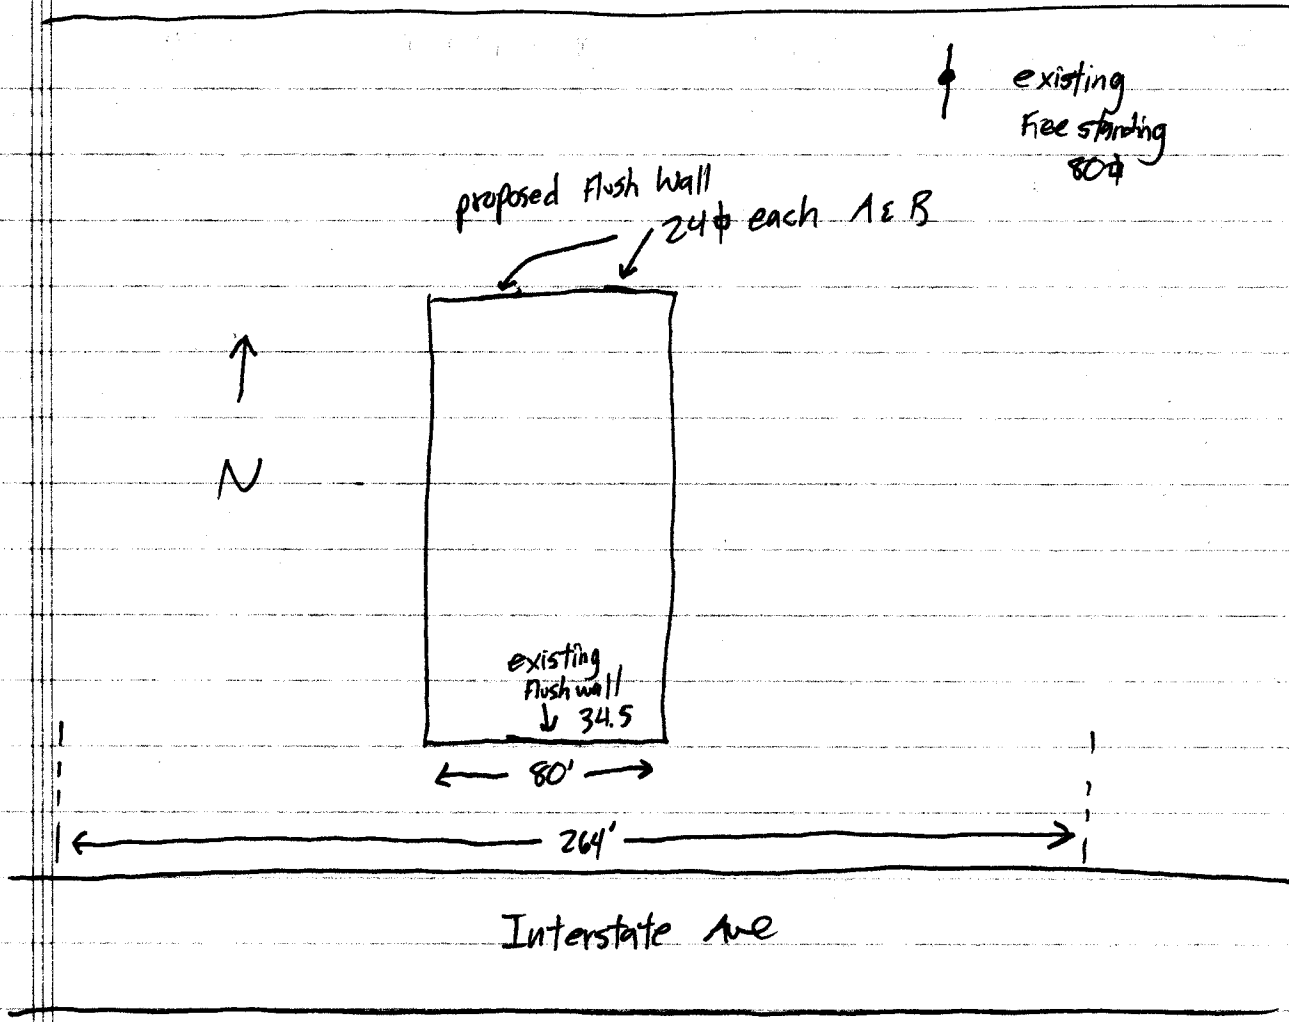 existing
Free standing
80⌽
proposed Flush Wall
24⌽ each A & B
N
existing
Flush wall
34.5
80'
264'
Interstate Ave